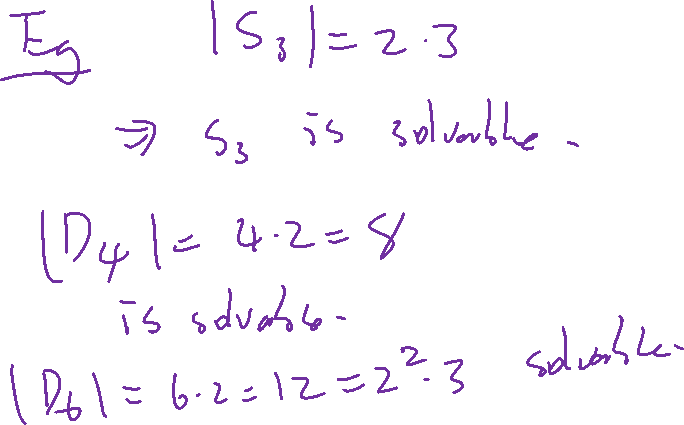 Eg |S₃| = 2·3
⇒ S₃ is solvable.
|D₄| = 4·2 = 8
is solvable.
|D₆| = 6·2 = 12 = 2²·3 solvable.